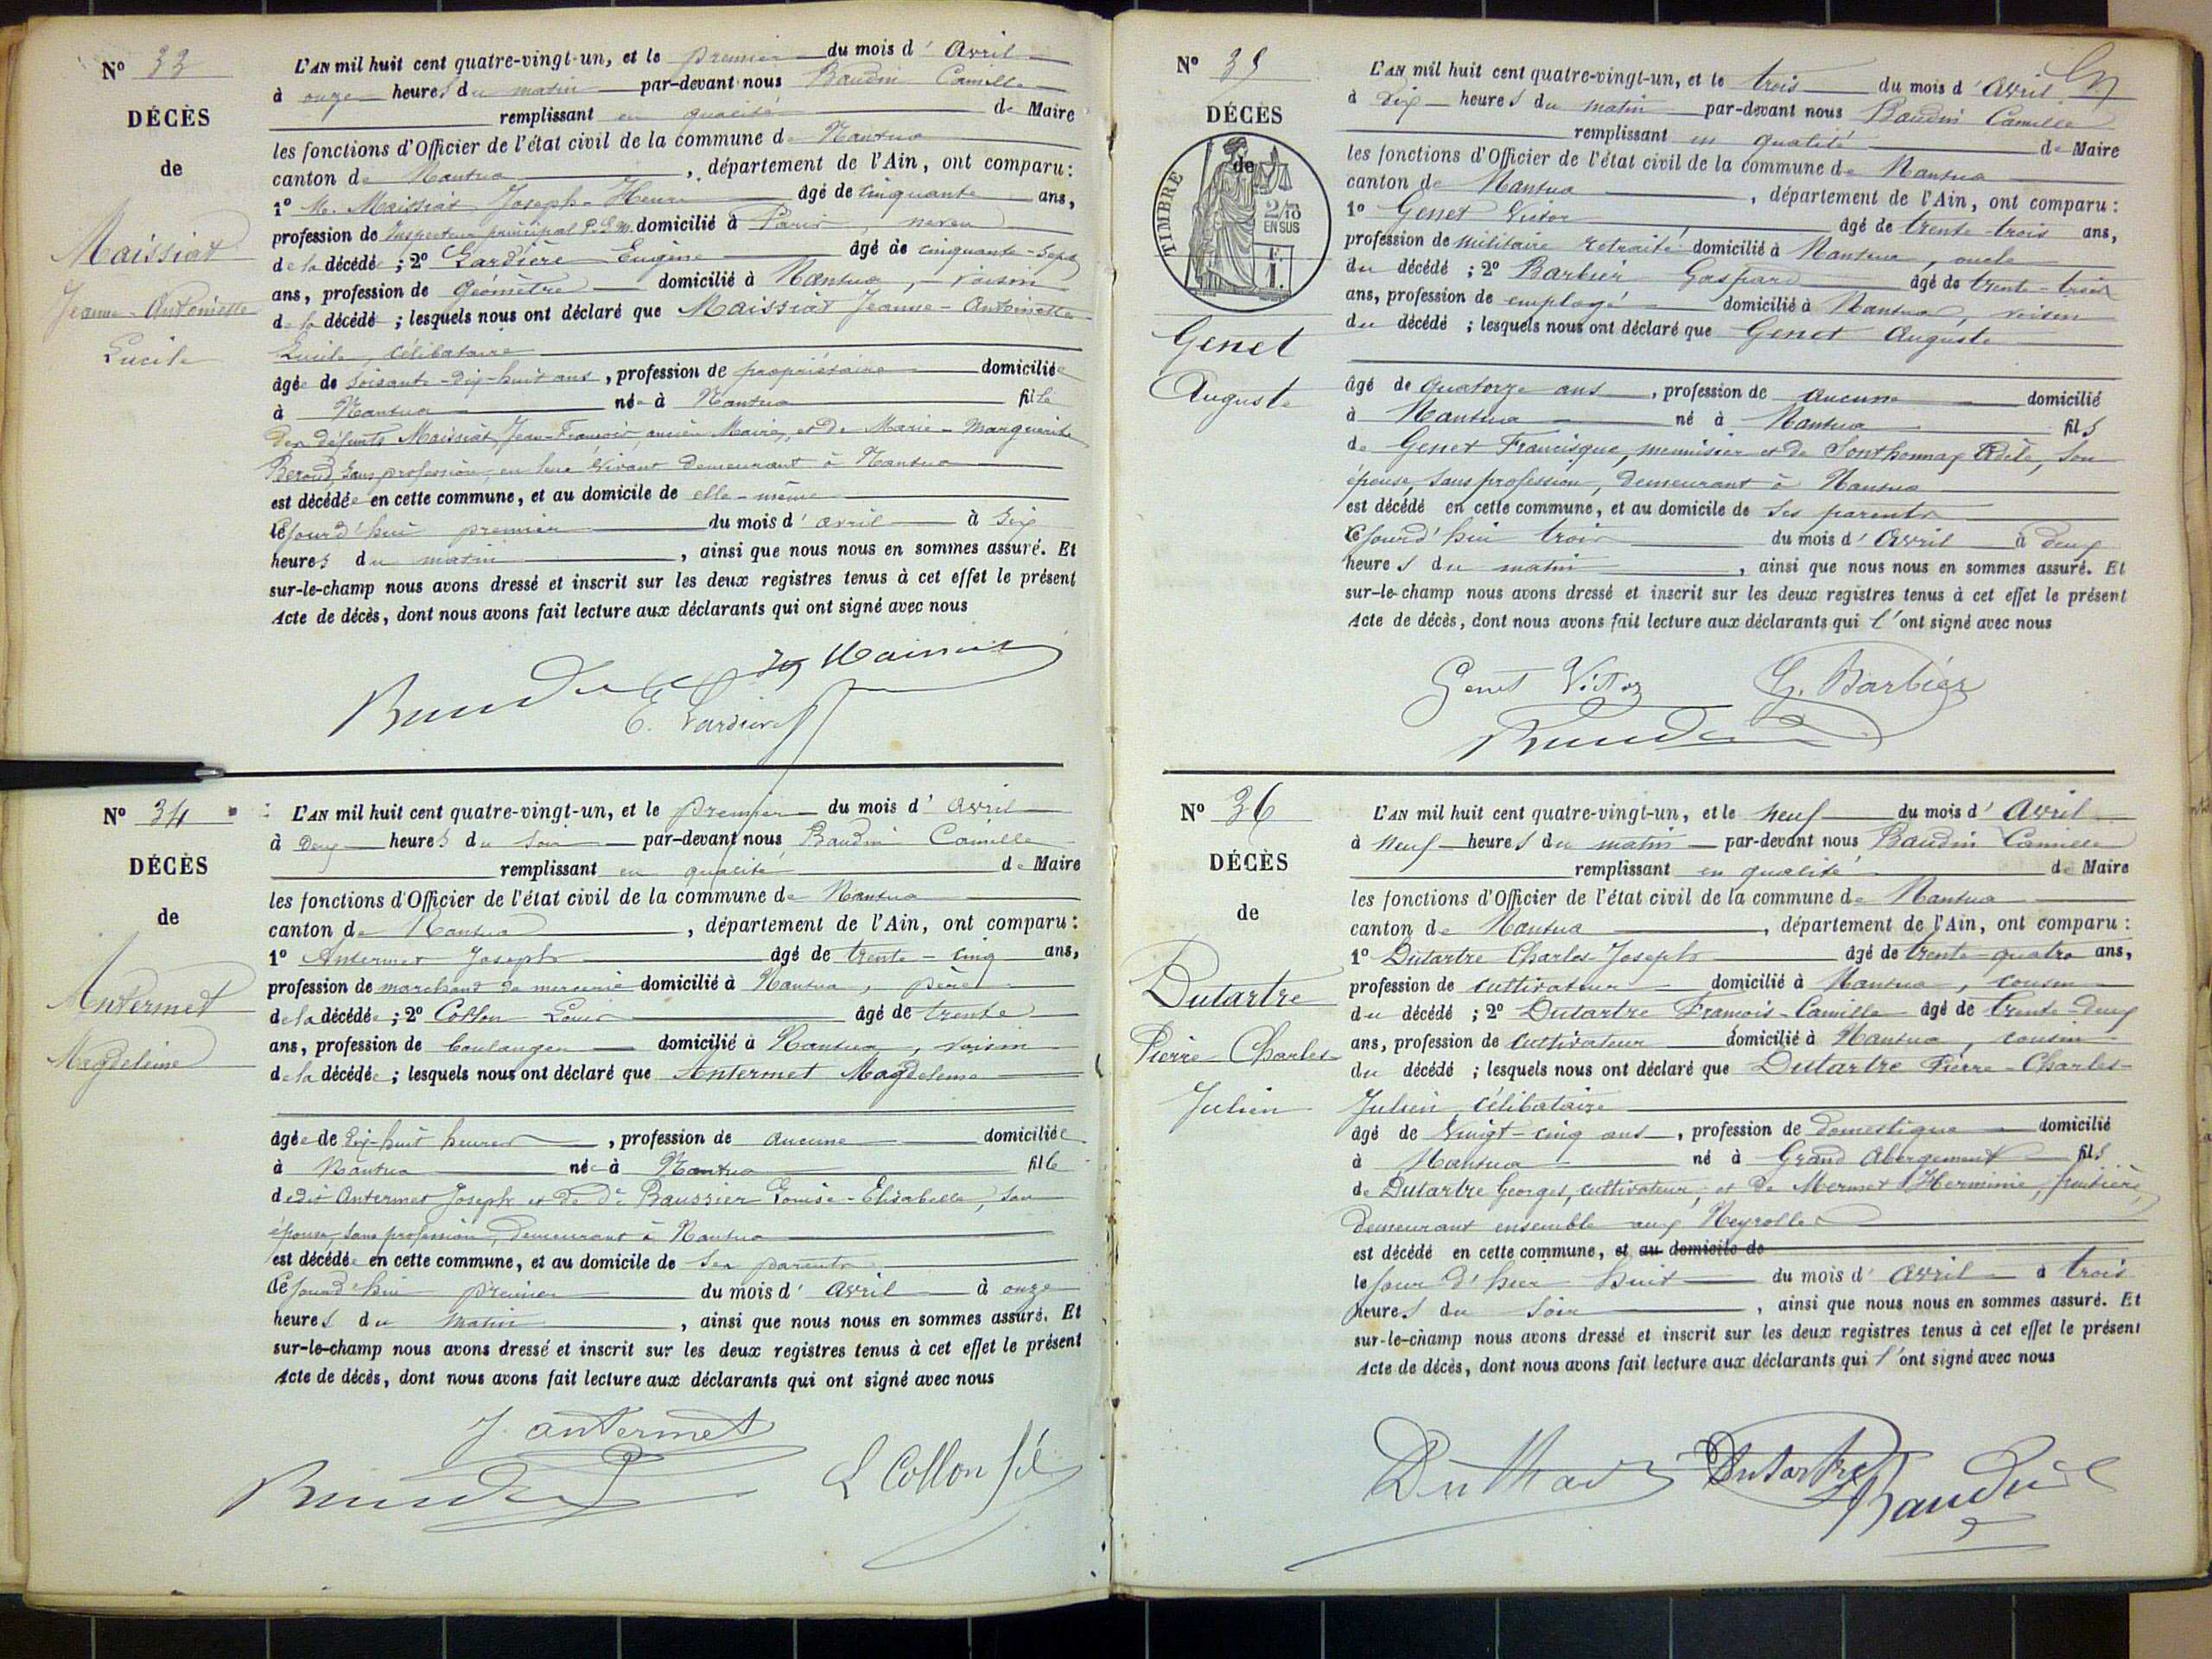 N° 33
DÉCÈS
de
Maissiat
Jeanne-Antoinette
Lucile
L'AN mil huit cent quatre-vingt-un, et le premier du mois d' Avril
à onze heures du matin par-devant nous Baudin Camille
remplissant en qualité de Maire
les fonctions d'Officier de l'état civil de la commune de Nantua
canton de Nantua, département de l'Ain, ont comparu:
1° M. Maissiat Joseph-Henri âgé de cinquante ans,
profession de Inspecteur principal P.L.M. domicilié à Paris, neveu
de la décédée; 2° Lardière Eugène âgé de cinquante-sept
ans, profession de géomètre domicilié à Nantua, voisin
de la décédée; lesquels nous ont déclaré que Maissiat Jeanne-Antoinette
Lucile, célibataire
âgée de soisante-dix-huit ans, profession de propriétaire domiciliée
à Nantua née à Nantua fille
des défunts Maissiat Jean-François, ancien Maire, et de Marie-Marguerite
Béroud, sans profession, en leur vivant demeurant à Nantua
est décédée en cette commune, et au domicile de elle-même
cejourd'hui premier du mois d' avril à six
heures du matin, ainsi que nous nous en sommes assuré. Et
sur-le-champ nous avons dressé et inscrit sur les deux registres tenus à cet effet le présent
Acte de décès, dont nous avons fait lecture aux déclarants qui ont signé avec nous
Maissiat
Baudin E. Lardière
N° 34
DÉCÈS
de
Antermet
Magdeleine
L'AN mil huit cent quatre-vingt-un, et le premier du mois d' Avril
à deux heures du soir par-devant nous Baudin Camille
remplissant en qualité de Maire
les fonctions d'Officier de l'état civil de la commune de Nantua
canton de Nantua, département de l'Ain, ont comparu:
1° Antermet Joseph âgé de trente-cinq ans,
profession de marchand de mercerie domicilié à Nantua, père
de la décédée; 2° Collon Louis âgé de trente
ans, profession de boulanger domicilié à Nantua, voisin
de la décédée; lesquels nous ont déclaré que Antermet Magdeleine
âgée de dix-huit heures, profession de aucune domiciliée
à Nantua née à Nantua fille
dedit Antermet Joseph et de de Baussier Louise-Elisabelle, son
épouse, sans profession, demeurant à Nantua
est décédée en cette commune, et au domicile de ses parents
cejourd'hui premier du mois d' avril à onze
heures du matin, ainsi que nous nous en sommes assuré. Et
sur-le-champ nous avons dressé et inscrit sur les deux registres tenus à cet effet le présent
Acte de décès, dont nous avons fait lecture aux déclarants qui ont signé avec nous
J. antermet
Baudin L Collon fils
N° 35
DÉCÈS
de
TIMBRE
2/10
EN SUS
F.
1.
Genet
Auguste
L'AN mil huit cent quatre-vingt-un, et le trois du mois d' Avril
à dix heures du matin par-devant nous Baudin Camille
remplissant en qualité de Maire
les fonctions d'Officier de l'état civil de la commune de Nantua
canton de Nantua, département de l'Ain, ont comparu:
1° Genet Victor âgé de trente-trois ans,
profession de militaire retraité domicilié à Nantua, oncle
du décédé; 2° Barbier Gaspard âgé de trente-trois
ans, profession de employé domicilié à Nantua, voisin
du décédé; lesquels nous ont déclaré que Genet Auguste
âgé de quatorze ans, profession de aucune domicilié
à Nantua né à Nantua fils
de Genet Francisque, menuisier et de Sonthonnax Adèle, son
épouse, sans profession, demeurant à Nantua
est décédé en cette commune, et au domicile de ses parents
cejourd'hui trois du mois d' Avril à deux
heures du matin, ainsi que nous nous en sommes assuré. Et
sur-le-champ nous avons dressé et inscrit sur les deux registres tenus à cet effet le présent
Acte de décès, dont nous avons fait lecture aux déclarants qui l'ont signé avec nous
Genet Victor G. Barbier
Baudin
N° 36
DÉCÈS
de
Dutartre
Pierre-Charles
Julien
L'AN mil huit cent quatre-vingt-un, et le neuf du mois d' Avril
à neuf heures du matin par-devant nous Baudin Camille
remplissant en qualité de Maire
les fonctions d'Officier de l'état civil de la commune de Nantua
canton de Nantua, département de l'Ain, ont comparu:
1° Dutartre Charles Joseph âgé de trente-quatre ans,
profession de cultivateur domicilié à Nantua, cousin
du décédé; 2° Dutartre François-Camille âgé de trente-deux
ans, profession de cultivateur domicilié à Nantua, cousin
du décédé; lesquels nous ont déclaré que Dutartre Pierre-Charles-
Julien, célibataire
âgé de vingt-cinq ans, profession de domestique domicilié
à Nantua né à Grand Abergement fils
de Dutartre Georges, cultivateur, et de Mermet Herminie, fruitière,
demeurant ensemble aux Neyrolles
est décédé en cette commune, et au domicile de
le jour d'hier huit du mois d' avril à trois
heures du soir, ainsi que nous nous en sommes assuré. Et
sur-le-champ nous avons dressé et inscrit sur les deux registres tenus à cet effet le présent
Acte de décès, dont nous avons fait lecture aux déclarants qui l'ont signé avec nous
Dutartre Baudin